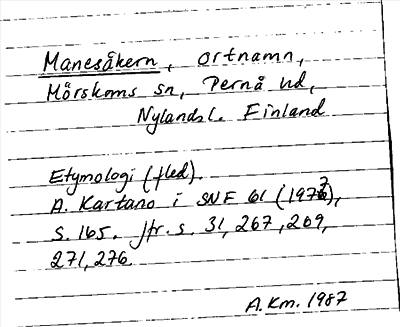 Manesåkern, ortnamn,
Mörskoms sn, Pernå hd,
Nylandsl. Finland
Etymologi (fled).
A. Kartano i SNF 61 (1973),
S. 165. Jfr. s. 31, 267, 269,
271, 276
A.Km. 1987